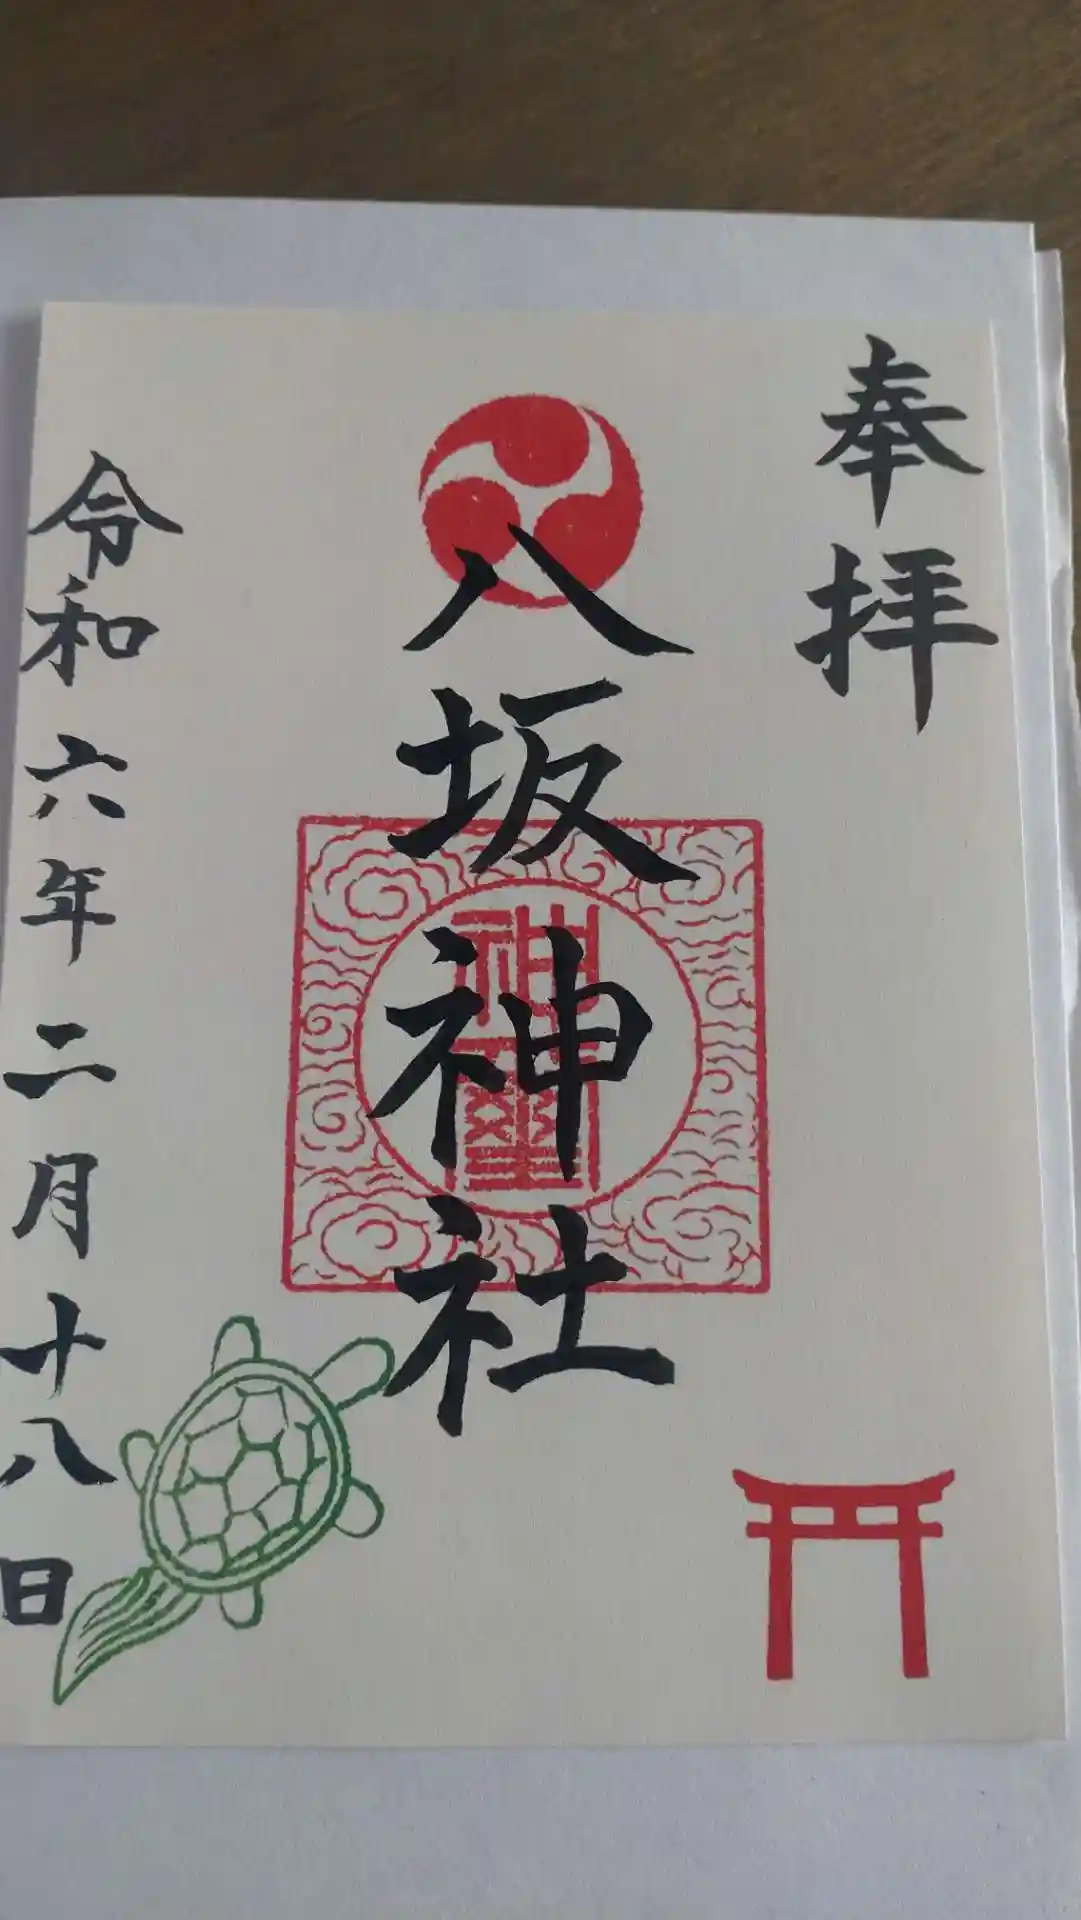 奉拝
八坂神社
神璽
令和六年二月十八日